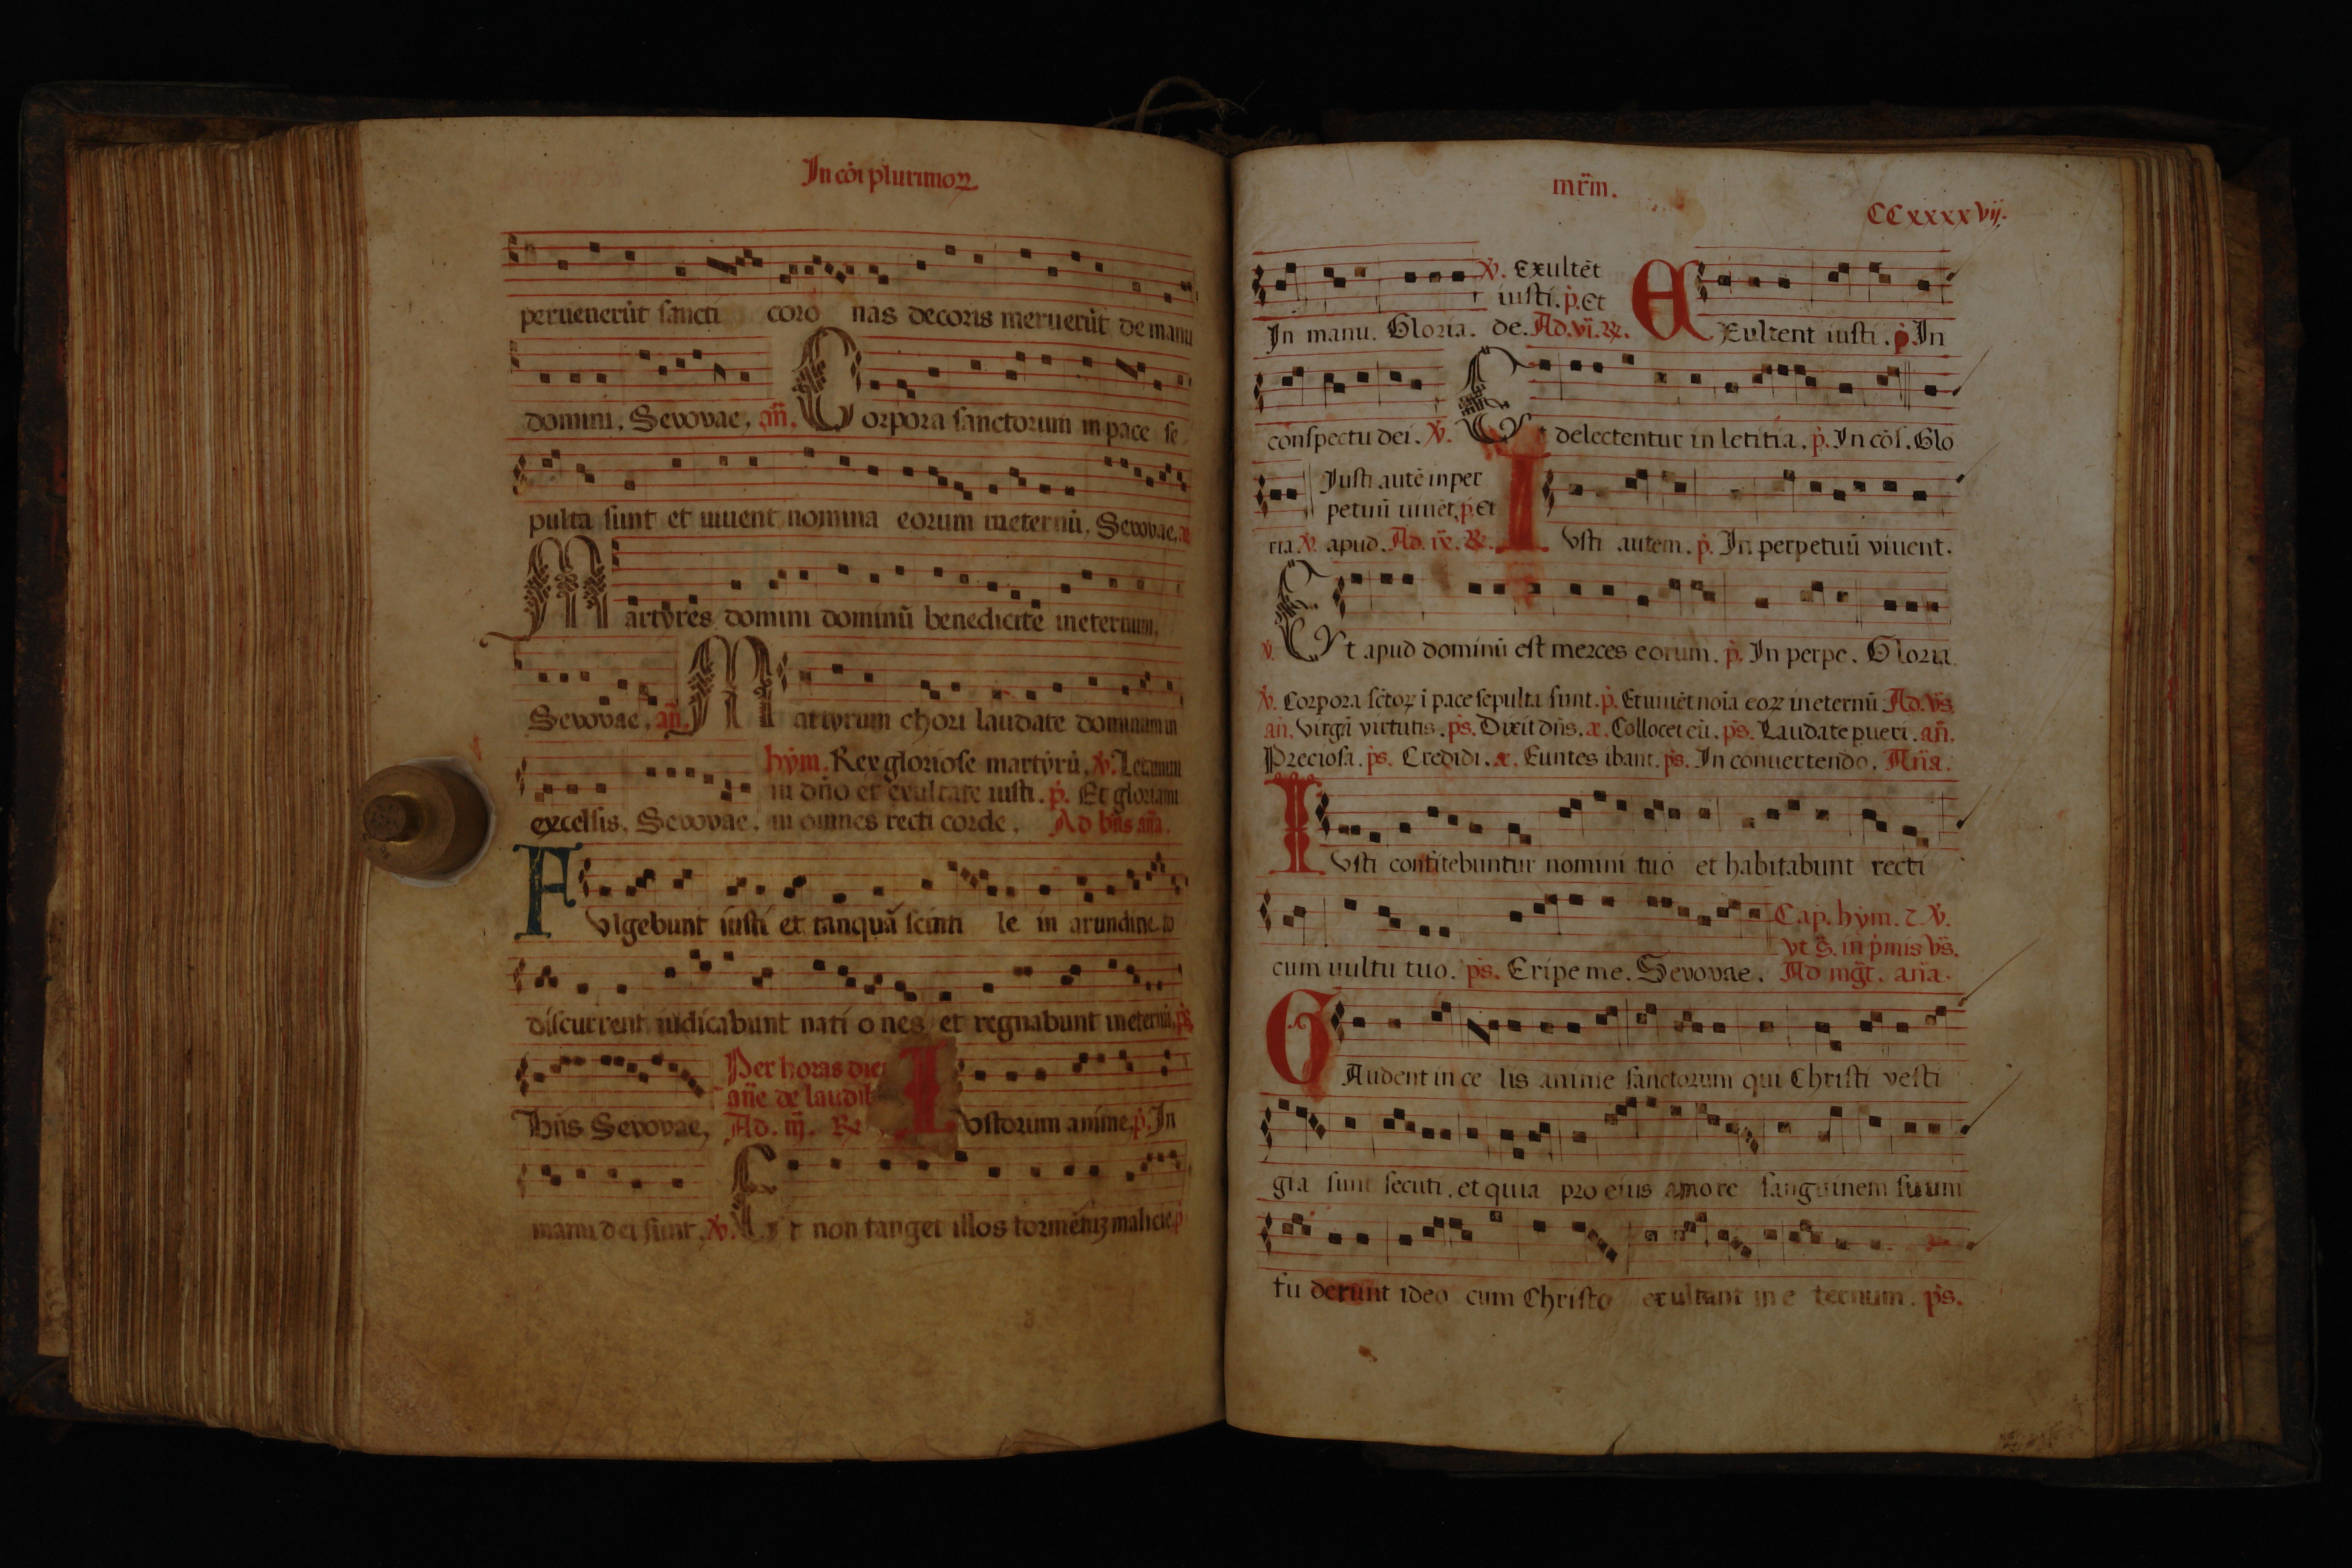 In cōi plurimoꝝ.
peruenerūt sancti coro nas decoris meruerūt de manu
domini. Seuouae. añ. Corpora sanctorum in pace se
pulta sunt et uiuent nomina eorum ineternū. Seuouae. añ
Martyres domini dominū benedicite ineternum.
Seuouae. añ. Martyrum chori laudate dominum in
hym. Rex gloriose martyrū. ℣. Letamini
in dño et exultate iusti. p̄. Et gloriami
excelsis. Seuouae. ni omnes recti corde. Ad bñs aña.
Fvlgebunt iusti et tanquā scinti le in arundineto
discurrent iudicabunt nati o nes et regnabunt ineternū. ps̄.
Per horas diei
añe de laudib
Bñs Seuouae. Ad. iij. ℟ Ivstorum anime. p̄. In
manu dei sunt. ℣. Et non tanget illos tormētuꝫ malicie. p̄
mr̄m.
CCxxxxvij.
℣. Exultēt
iusti. p̄. et
In manu. Gloria. de. Ad. vi. ℟. EXultent iusti. p̄. In
conspectu dei. ℣. Et delectentur in letitia. p̄. In cōs. Glo
Iusti autē in per
petuū uiuēt. p̄. Et
ria. ℣. apud. Ad. ix. ℟. Ivsti autem. p̄. In perpetuū viuent.
℣. Et apud dominū est merces eorum. p̄. In perpe. Gloria
℣. Corpora sc̄toꝝ i pace sepulta sunt. p̄. Et uiuēt noīa eoꝝ ineternū Ad. vs̄.
añ. Virgā virtutis. ps̄. Dixit dñs. æ. Collocet eū. ps̄. Laudate pueri. añ.
Preciosa. ps̄. Credidi. æ. Euntes ibant. ps̄. In conuertendo. Aña.
Ivsti confitebuntur nomini tuo et habitabunt recti
Cap. hym. ⁊ ℣.
vt s̄. in p̄mis vs̄.
cum uultu tuo. ps̄. Eripe me. Seuouae. Ad mḡt. aña.
GAudent in ce lis anime sanctorum qui Christi vesti
gia sunt secuti. et quia pro eius amore sanguinem suum
fu derunt ideo cum Christo exultant in e ternum. ps̄.